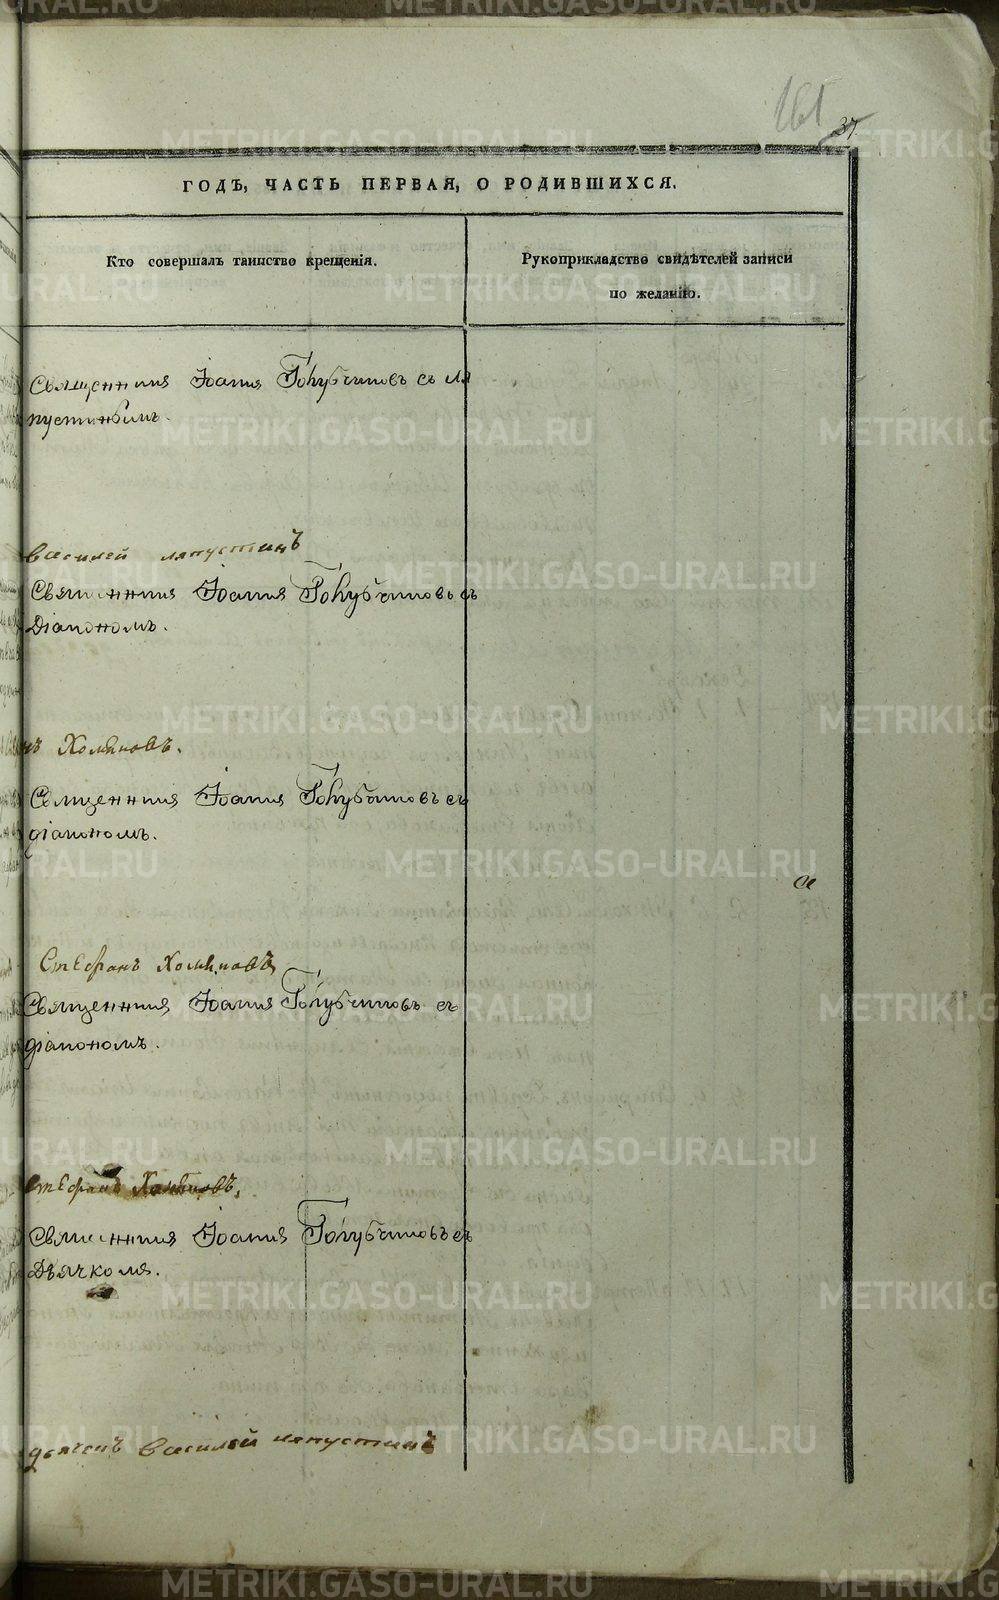 161
37
ГОДЪ, ЧАСТЬ ПЕРВАЯ, О РОДИВШИХСЯ.
Кто совершалъ таинство крещенія.
Рукоприкладство свидѣтелей записи
по желанію.
Священникъ Іоаннъ Голубчиковъ съ Ля
пустинымъ.
Василей ляпустинъ
Священникъ Іоаннъ Голубчиковъ съ
Діакономъ.
Хомяковъ.
Священникъ Іоаннъ Голубчиковъ съ
діакономъ.
Стефанъ Хомяковъ
Священникъ Іоаннъ Голубчиковъ съ
діакономъ.
Стефанъ Хомяковъ,
Священникъ Іоаннъ Голубчиковъ съ
Дьячкомъ.
дьячекъ Василей ляпустинъ
METRIKI.GASO-URAL.RU